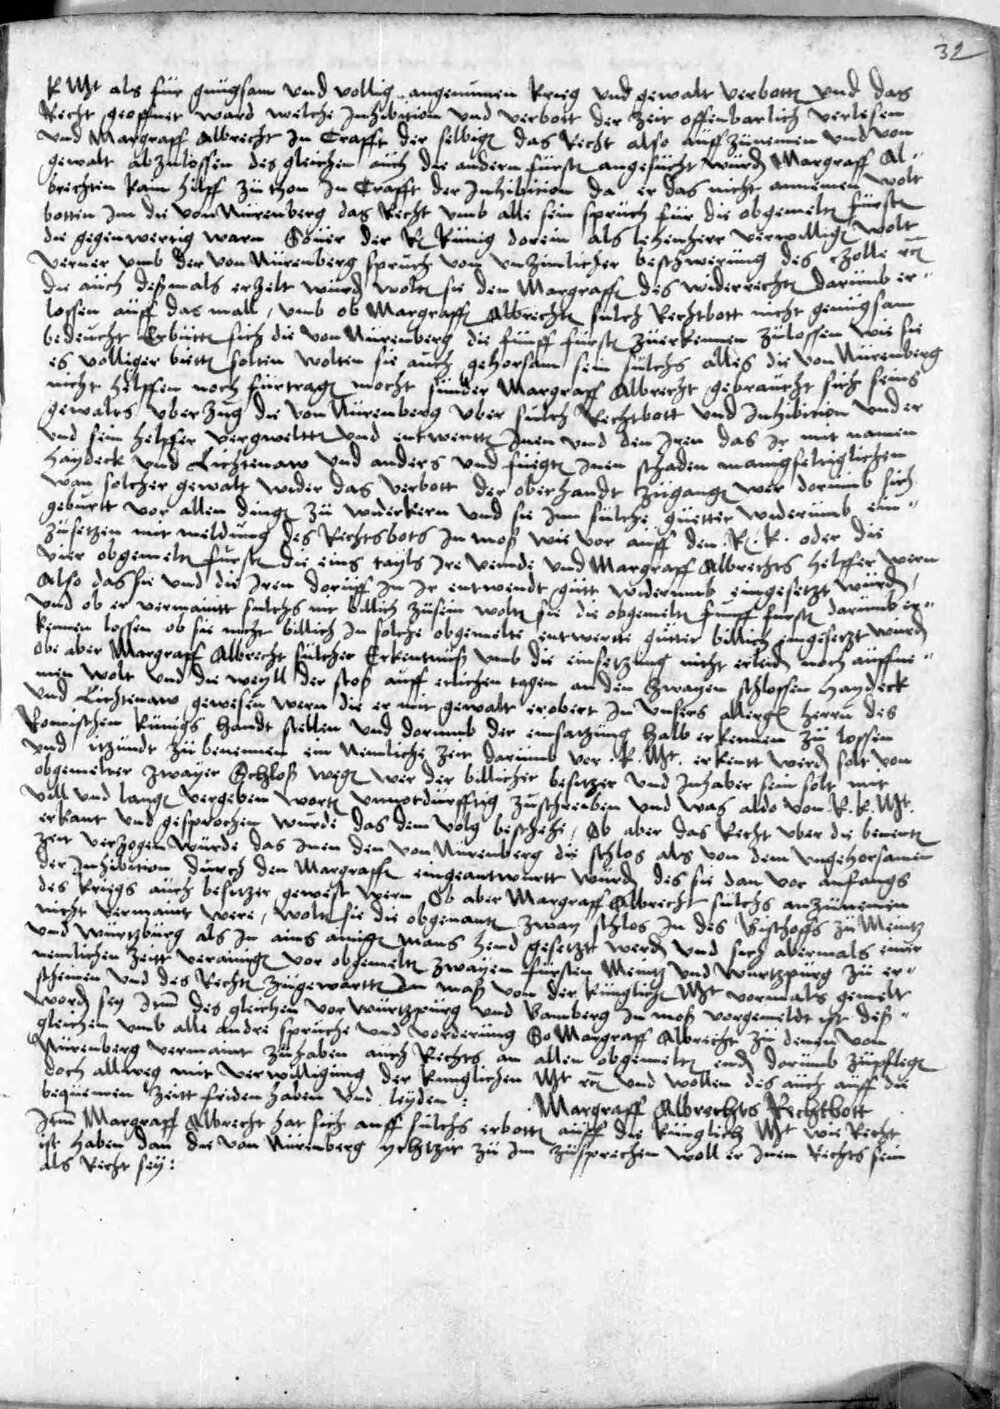 32
K Mt als für gnügsam und vollig angenumen krieg und gewalt verbotten und das
Recht geoffnet ward welche Inhibition und verbott der Zeit offenbarlich verlesen
und Margraff Albrecht In Crafft der selbigen das Recht also auff zünemen und von
gewalt abzulossen des gleichen auch die andern fürsten angesücht würden Margraff Al-
brechten kain hilff zü thon In Crafft der Inhibition da er das nicht annemen wolt
botten Im die von Nürenberg das Recht umb alle sein sprüch für die obgemelten fürsten
die gegenwertig warn Souer der R Künig dorein als lehenherr verwilligen wolt
verner umb der von Nürenberg spruch von unzimlicher beschwerung des Zolls etc
die auch deßmals erzelt würden wolten sie den Margraffen des widerrechten darumb er-
lossen auff das mall / umb ob Margraffen Albrechten sulch Rechtbott nicht genugsam
bedeucht Erbütten sich die von Nürenberg die fünff fürsten zuerkennen zülossen wie sie
es volliger bietten solten wolten sie auch gehorsam sein sülchs alles die von Nürenberg
nicht helffen noch fürtragen mocht sünder Margraff Albrecht gebraucht sich seins
gewalts uberzug die von Nürenberg uber sulch Rechtbott und Inhibition und er
und sein helffer vergweltten und entwertten Inen und den Iren das Ir mit namen
Haydeck und Lichtenaw und anders und fuegten Inen schaden manigfeltiglichen
wan solcher gewalt wider das verbott der oberhandt zügangen wer dorümb sich
geburtt vor allen dingen zü widerkern und sie Inn sülche güetter widerumb ein-
zusetzen mit meldung des Rechtsbots In moß wie vor auff den R. K. oder die
vier obgemelten fürsten die eins tayls Ire veinde und Margraff Albrechts helffer wern
Also das sie und die Iren doruff In Ir entwendt gütt widerumb eingesetzt würden /
und ob er vermaintt sulchs nit billich züsein wolten sie die obgemelten funff fursten darumb er-
kennen lossen ob sie nicht billich In solche obgemelte entwertte gütter billich eingesetzt würden
obe aber Margraff Albrecht sülcher Erkentnüß umb die einsetzung nicht erleiden noch auffne-
men wolt und die weyll der stoß auff etlichen tagen an den Zwayen schlossen Haydeck
und Lichtenaw gewesen wern die er mit gewalt erobert In unsers allergsten herrn des
Romischen künigs handt stellen und dorumb der einsatzung halb erkennen zü lossen
und itzündt zü benennen ein Nemliche zeit darumb vor. K. Mt. erkentt werden solt von
obgemelter Zwayer Schloß wegen wer der billicher besitzer und Inhaber sein solt mit
vill und langen vergeben worten unnotdürfftig zuschreiben und was aldo von R. K. Mt.
erkant und gesprochen würde das dem volg beschehe / Ob aber das Recht uber die benentten
zeit verzogen würde das Inen den von Nürenberg die schlos als von dem ungehorsamen
der Inhibition durch den Margraffen eingeantwurtt würden des sie dan vor anfangs
des kriegs auch besitzer gewest wern Ob aber Margraff Albrecht sulchs anzünemen
nicht vermaint were / wolten sie die obgenanten zway schlos In des Bischoffs zü Meintz
und Würtzbürg als In ains ainigen mans hend gesetzt werden und sich abermals einer
nemlichen zeitt verainigen vor obgemelten zwayen fürsten Meintz und Würtzpurg zü er-
scheinen und des Rechten zügewartten In maß von der künglichen Mt vormals gemelt
worden sey Item des gleichen vor Würtzpürg und Bamberg In moß vorgemeldt ist deß-
gleichen umb alle andre spruche und vorderung So Margraff Albrecht zü denen von
Nürenberg vermaint zühaben auch Rechts an allen obgemelten enden darumb züpflegen
doch allweg mit verwilligung der kunglichen Mt etc und wollen des auch auff die
beqüemen zeitt friden haben und leyden :
Margraff Albrechts Rechtbott
Item Margraff Albrecht hat sich auff sulchs erbotten auff die Künglich Mt wie Recht
ist haben dan die von Nürenberg ychtzit zü Im züsprechen woll er Inen Rechts sein
als Recht sey :